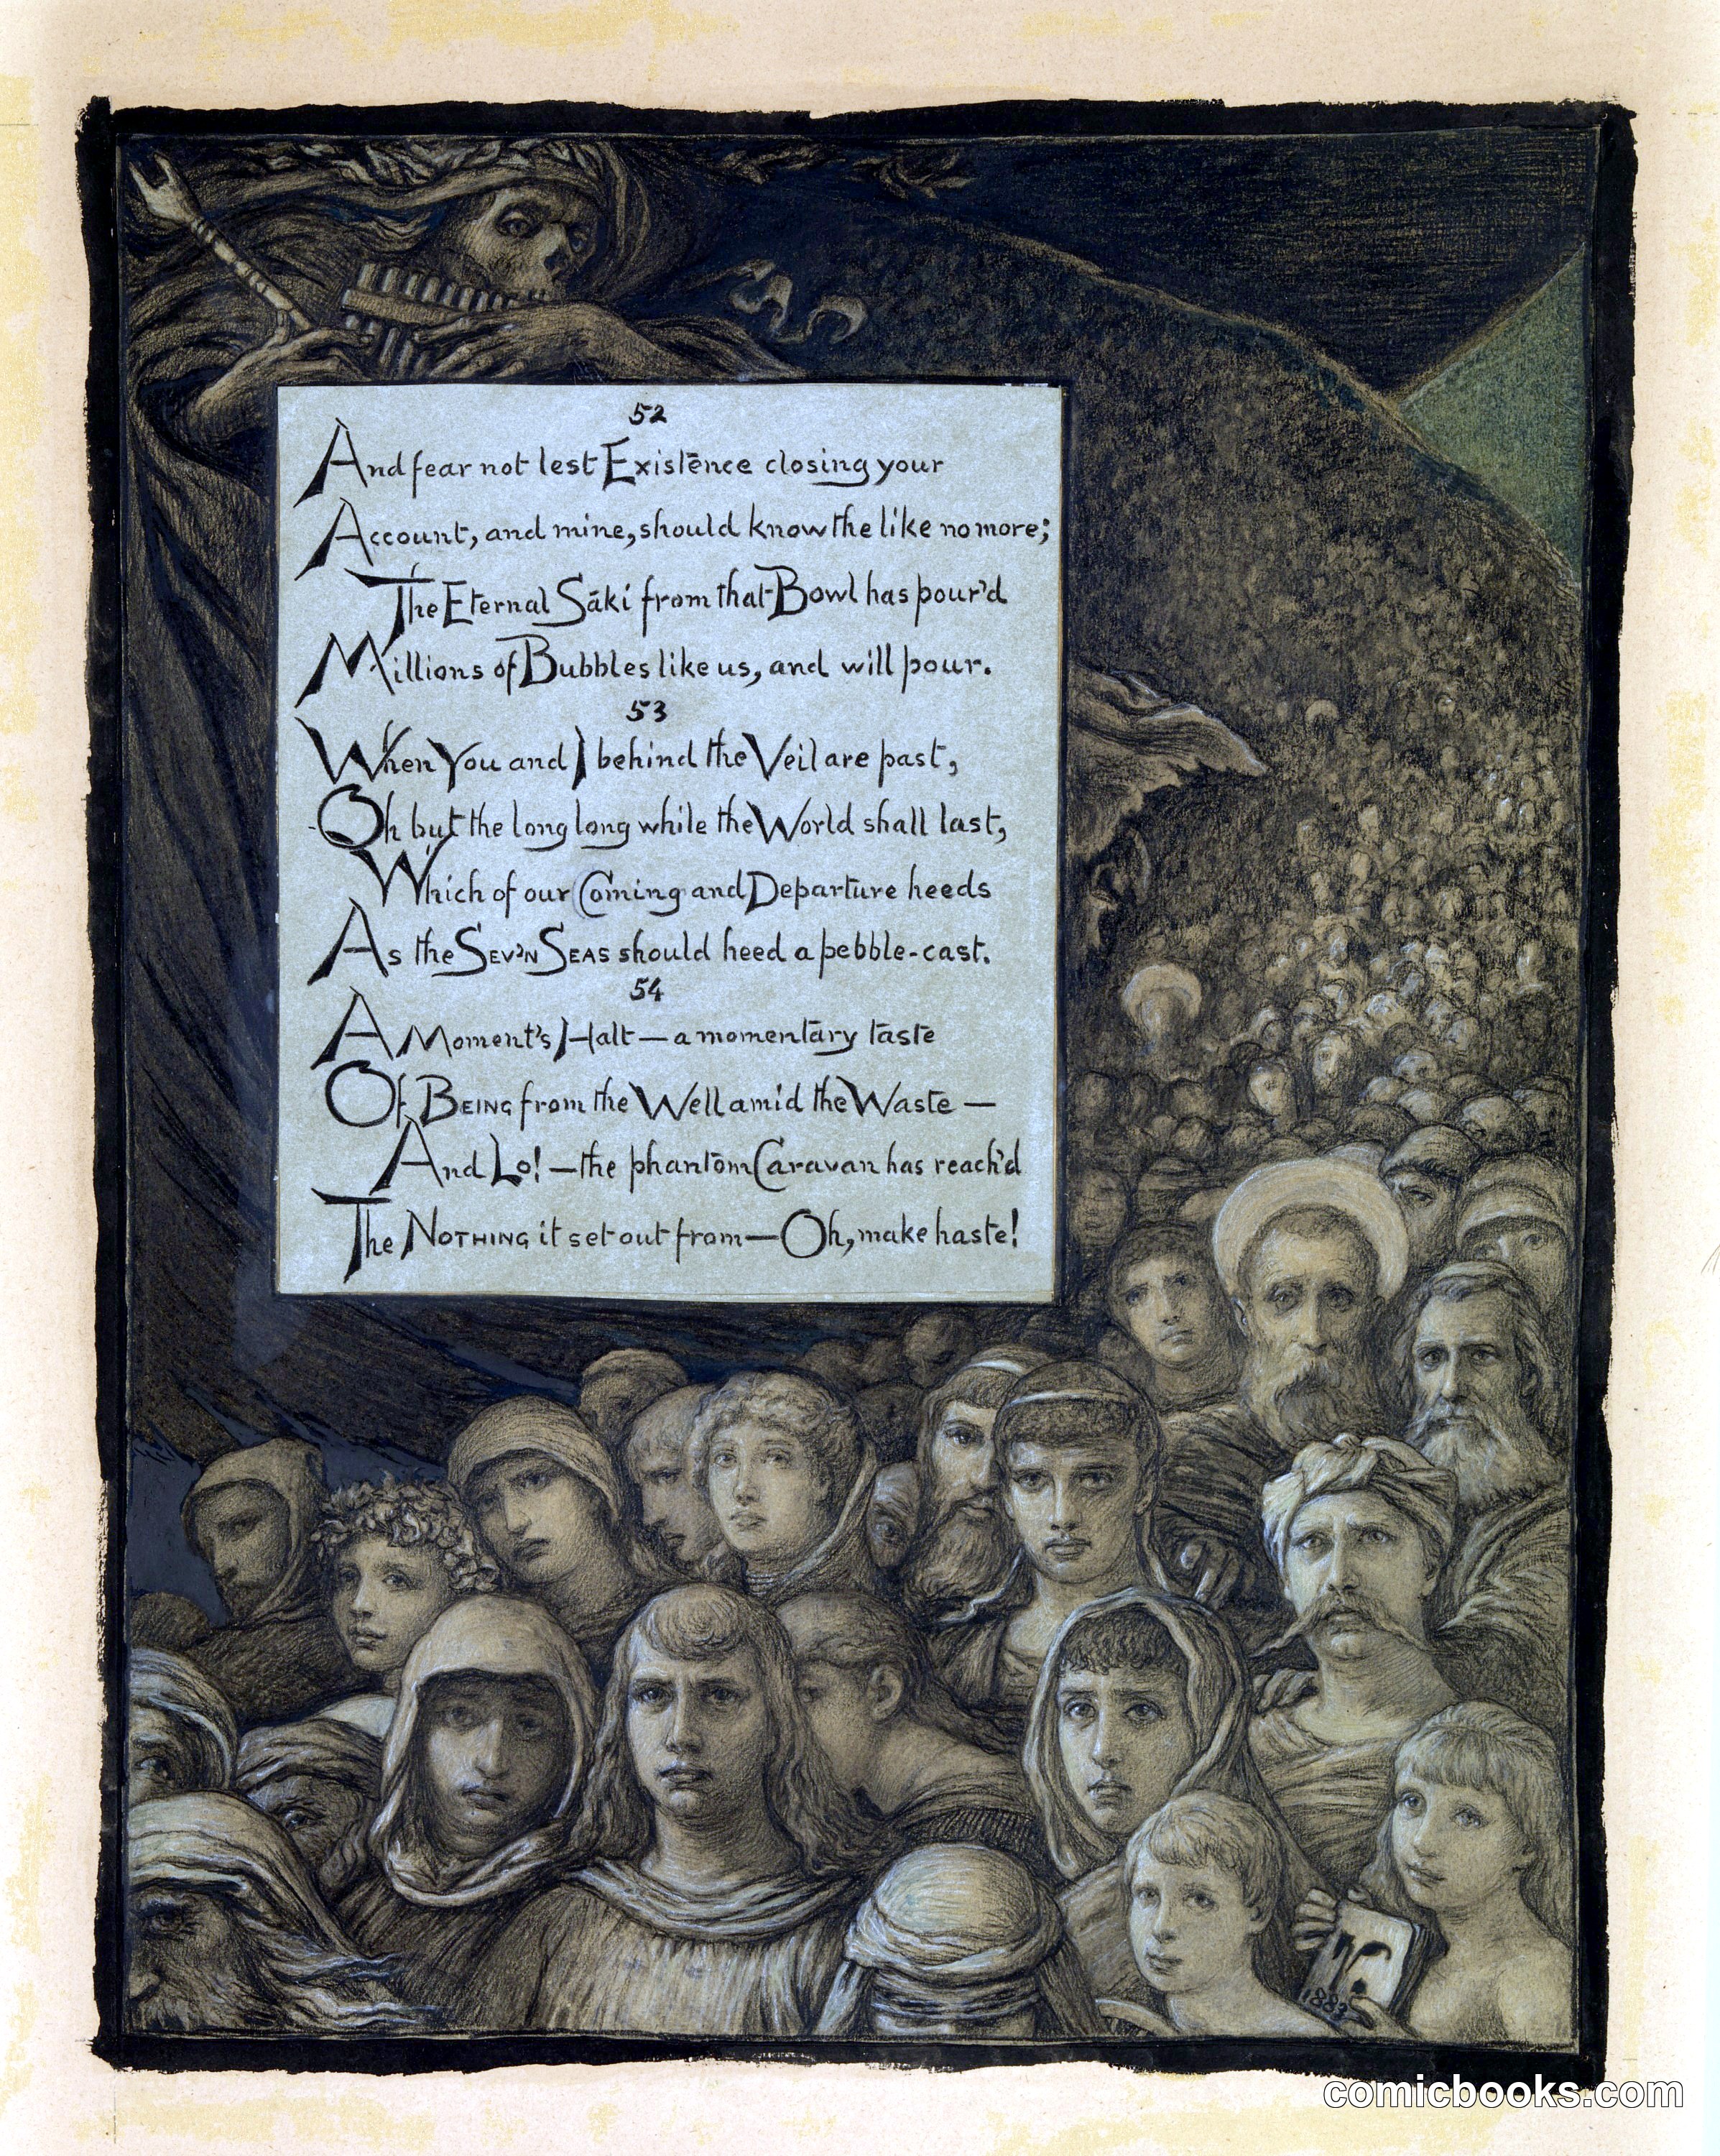 52
And fear not lest Existēnce closing your
Account, and mine, should know the like no more;
The Eternal Sākí from that Bowl has pour'd
Millions of Bubbles like us, and will pour.
53
When You and I behind the Veil are past,
Oh but the long long while the World shall last,
Which of our Coming and Departure heeds
As the Sev'n Seas should heed a pebble-cast.
54
A Moment's Halt — a momentary taste
Of Being from the Well amid the Waste —
And Lo! — the phantom Caravan has reach'd
The Nothing it set out from — Oh, make haste!
1883
comicbooks.com